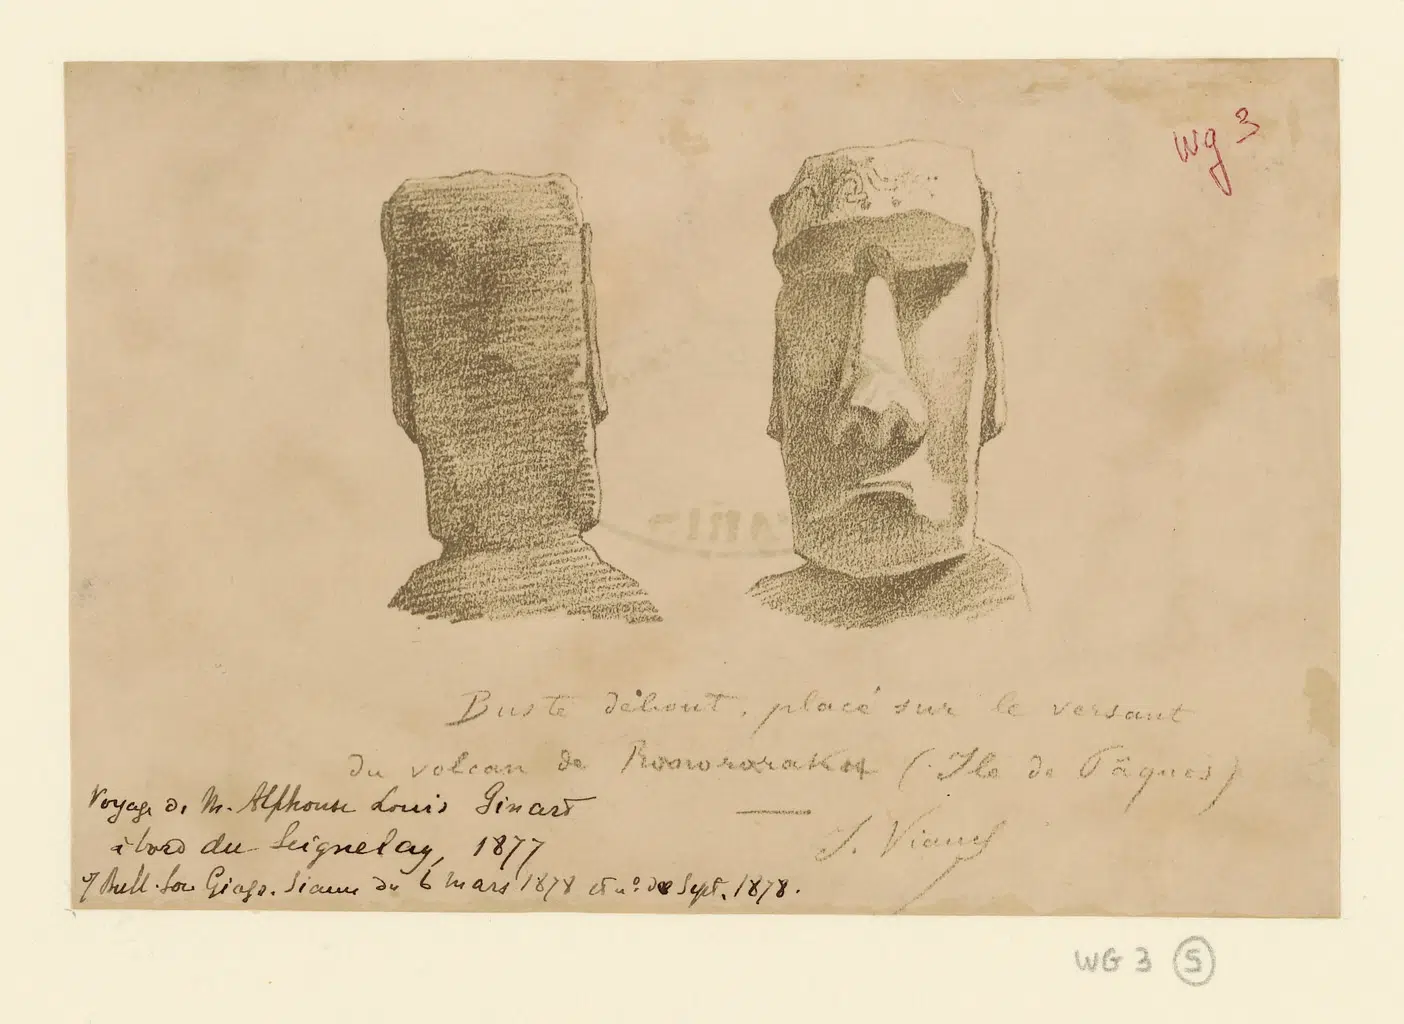 Wg 3
Buste debout, placé sur le versant
du volcan de Ronororaka (Ile de Pâques)
J. Viaud
Voyage de M. Alphonse Louis Pinart
à bord du Seignelay, 1877
Bull. Soc Géogr. Séance du 6 mars 1878 et nº de Sept. 1878.
WG 3 5